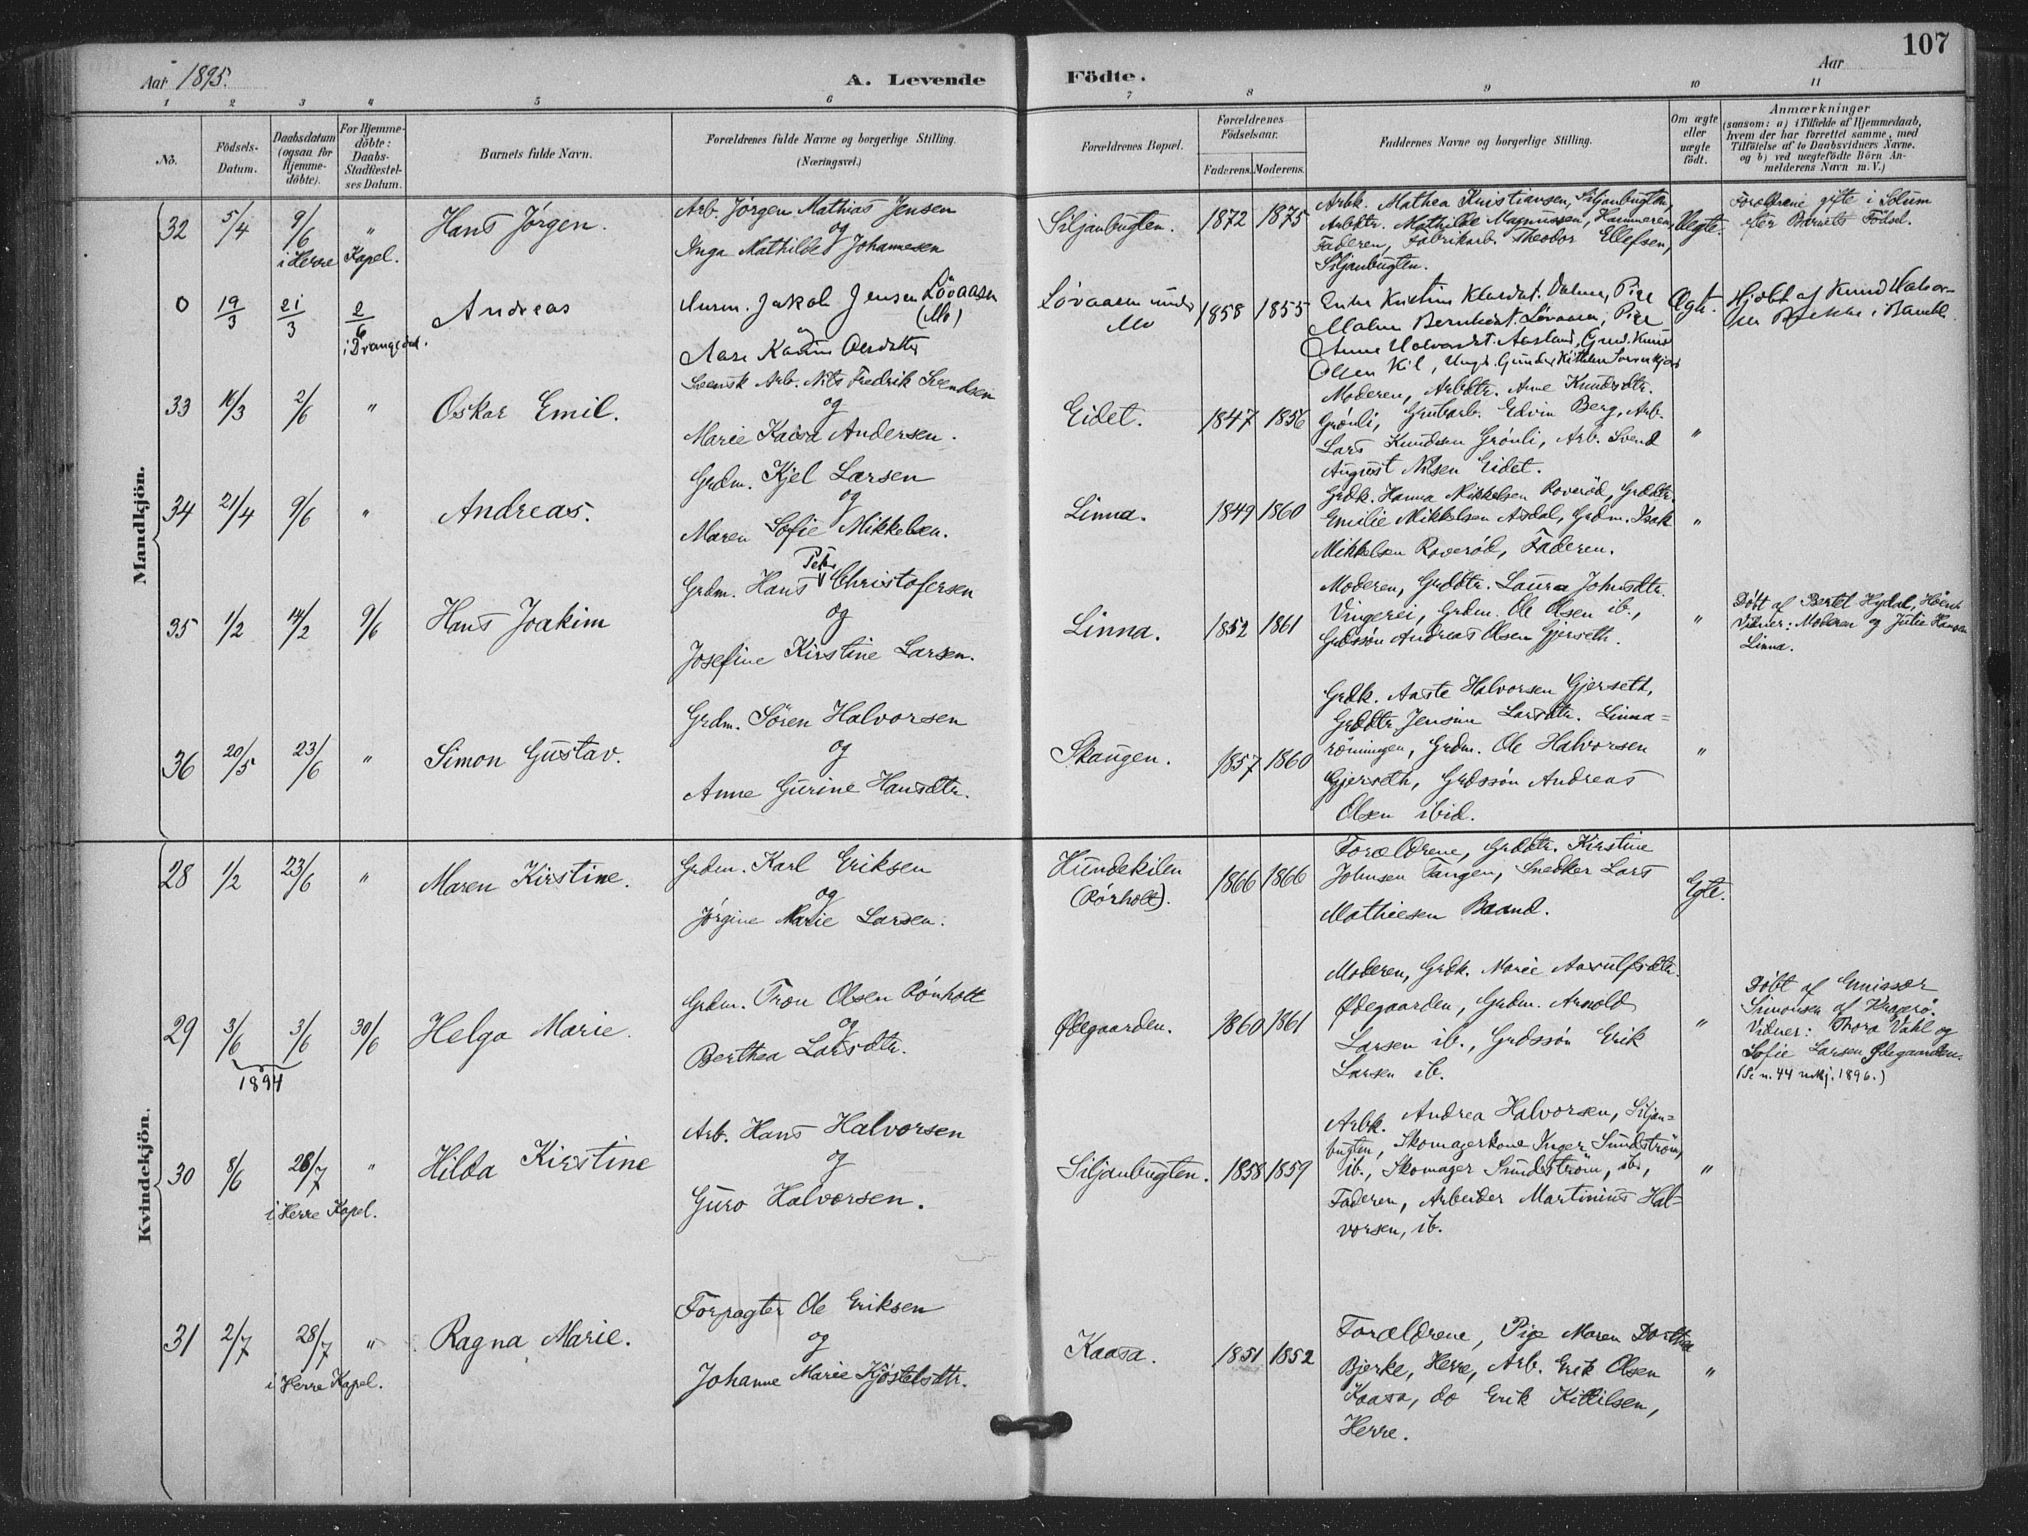 Aar 1895.
A. Levende Födte.
Aar
107
1 2 3 4 5 6 7 8 9 10 11
No.
Födsels-Datum.
Daabsdatum (ogsaa for Hjemme-döbte).
For Hjemme-döbte: Daabs-Stadfæstel-ses Datum.
Barnets fulde Navn.
Forældrenes fulde Navne og borgerlige Stilling. (Næringsvei.)
Forældrenes Bopæl.
Forældrenes Födselsaar.
Faderens. Moderens.
Faddernes Navne og borgerlige Stilling.
Om ægte eller uægte födt.
Anmærkninger
(saasom: a) i Tilfælde af Hjemmedaab,
hvem der har forrettet samme, med
Tilföielse af to Daabsvidners Navne.
og b) ved uægtefödte Börn An-
melderens Navn m. V.)
Mandkjön.
32 5/4 9/6 " Hans Jørgen.
i Herre Kapel.
Arb. Jørgen Mathias Jensen
og
Inga Mathilde Johannesen
Siljanbugten. 1872 1875
Arbk. Mathea Kristiansen, Siljanbugten,
Arbdtr. Mathilde Magnussen, Hammeren,
Faderen, Fabrikarb. Theodor Ellefsen,
Siljanbugten.
Uegte.
Forældrene gifte i Solum
efter Barnets Fødsel.
0 19/3 21/3 2/6 Andreas
i Drangedal.
Jakob Jensen Løvaasen
(Mo)
og
Aase Karine Olsdatter
Løvaasen under
Mo
1858 1855
Enke Kristine Dalene, Pige
Malene Løvaasen, Pige
Anne Halvorsdt. Aasland, Grd. Knud
Olsen Kil, Ungk. Gunder
Ægte
Hjdøbt af Knud Halvor-
sen Bakke i Bamble
33 16/3 2/6 " Oskar Emil.
Svensk Arb. Nils Fredrik Svendsen
og
Marie Kaisa Andersen.
Eidet. 1847 1856
Moderen, Arbdtr. Anne Knudsdtr.
Grønli, Grubarb. Edvin Berg, Arb.
Lars Knudsen Grønli, Arb. Svend
August Nilsen Eidet.
"
34 21/4 9/6 " Andreas.
Grdm. Kjel Larsen
og
Maren Sofie Mikkelsen.
Linna. 1849 1860
Grdk. Hanna Mikkelsen Roverød, Grddtr.
Emilie Mikkelsen Asdal, Grdm. Isak
Mikkelsen Roverød, Faderen.
"
35 1/2 14/2 9/6 Hans Joakim
Grdm. Hans Peter Christofersen
og
Josefine Kirstine Larsen.
Linna. 1852 1861
Moderen, Grddtr. Laura Johnsdtr.
Vingerei, Grdm. Ole Olsen ib.,
Grdssøn Andreas Olsen Gjerseth.
"
Døbt af Bertet Hydal,
Vidner: Moderen og Julie Hansen
Linna.
36 20/5 23/6 " Simon Gustav.
Grdm. Søren Halvorsen
og
Anne Gurine Hansdtr.
Skaugen. 1857 1860
Grdk. Aaste Halvorsen Gjerseth,
Grddtr. Jensine Larsdtr. Linna-
rønningen, Grdm. Ole Halvorsen
Gjerseth, Grdssøn Andreas
Olsen ibid.
"
Kvindekjön.
28 1/2 23/6 " Maren Kirstine.
Grdm. Karl Eriksen
og
Jørgine Marie Larsen.
Hundekilen
(Rørholt).
1866 1866
Forældrene, Grddtr. Kirstine
Johnsen Tangen, Snedker Lars
Mathiesen Baand.
Egte.
29 3/6 3/6 30/6 Helga Marie.
1894
Grdm. Tron Olsen Rønholt
og
Berthea Larsdtr.
Ødegaarden. 1860 1861
Moderen, Grdk. Marie Aasulfsdtr.
Ødegaarden, Grdm. Arnold
Larsen ib., Grdssøn Erik
Larsen ib.
"
Døbt af Emissær
Simonsen af Kragerø.
Vidner: Thora Vahl og
Sofie Larsen Ødegaarden.
(Se n. 44 mkj. 1896.)
30 8/6 28/7 " Hilda Kirstine
i Herre Kapel.
Arb. Hans Halvorsen
og
Guro Halvorsen.
Siljanbugten. 1858 1859
Arbk. Andrea Halvorsen, Siljan-
bugten, Skomagerkone Inger Sundstrøm,
ib., Skomager Sundstrøm, ib.,
Faderen, Arbeider Martinius Hal-
vorsen, ib.
"
31 2/7 28/7 " Ragna Marie.
i Herre Kapel.
Forpagter Ole Eriksen
og
Johanne Marie Kjøstelsdtr.
Kaasa. 1851 1852
Forældrene, Pige Maren Dorthea
Bjerke, Herre, Arb. Erik Olsen
Kaasa, do Erik Kittilsen,
Herre.
"